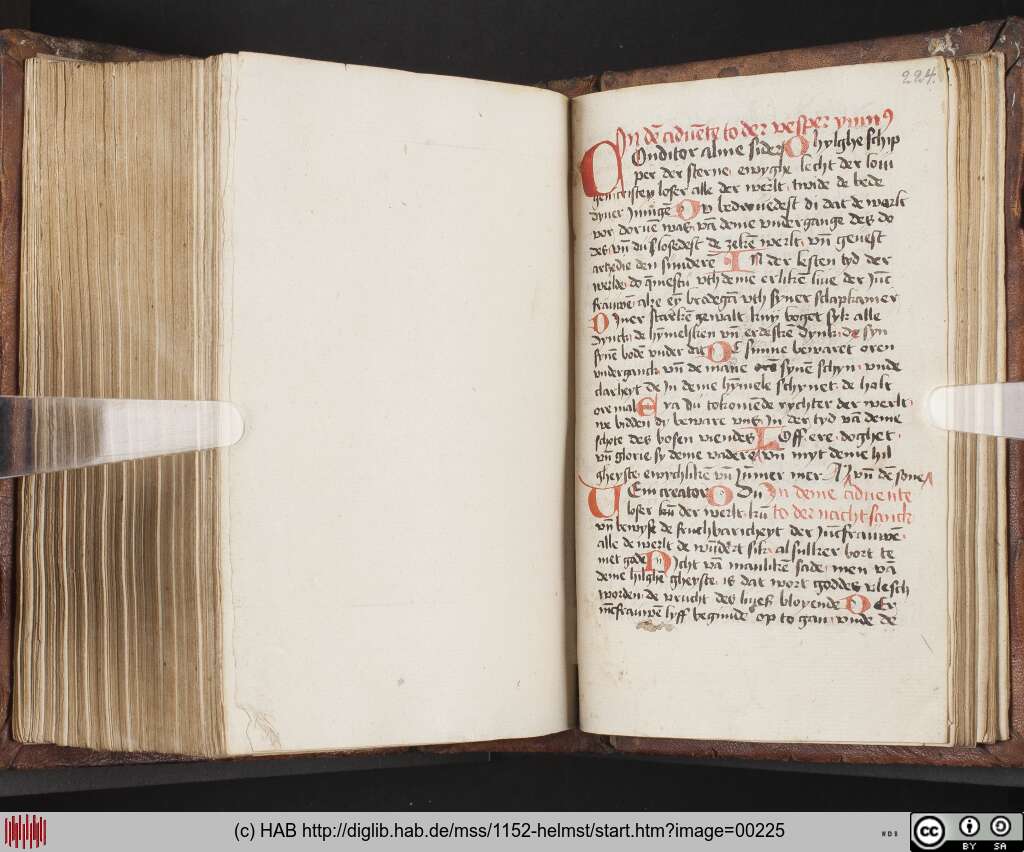 224.
In dē aduēte to der vesper ymnꝯ
Conditor alme siderꝫ O hylghe schip
per der sterne ewyghe lecht der loui
gen cristen loser alle der werlt twide de bede
dyner Innigē Du bedrouedest di dat de werlt
vor doruē was vā deme vndergange des do
des vn̄ du flosedest de zekē werlt vn̄ geuest
artzedie den sundere In der lesten tyd der
werlde do qmestu vth deme erlikē liue der Jūc
frauwē alze eȳ brodegā vth syner slapkamer
Dyner starkē gewalt knij boget syk alle
dynck de hȳmelsken vn̄ erdeskē dynk de syn
synē bode vnder dat De sunne bewaret oren
vndergank vn̄ de mane synē schyn vnde
clarheyt de In deme hȳmele schynet de halt
ore mal Eya du tokomēde rychter der werlt
we bidden dy beware vns In der tyd vā deme
schote des bosen viendes Loff ere doghet
vn̄ glorie sy deme vadere vn̄ myt deme hil
gheyste ewychlikē vn̄ Jūmer mer Aꝫ vn̄ dē sone
Uem creator O Du In deme aduente
loser der werlt kū to der nacht sanck
vn̄ bewyse de fruchbaricheyt der Jūcfrauwē
alle de werlt de wūdert sik al sulker bort te
met gade Nicht vā manlikē sade men vā
deme hilghē gheyste is dat wort goddes vlesch
worden de vrucht des liues bloyende Der
iūcfrauwē lyff begunde op to gan vnde de
(c) HAB http://diglib.hab.de/mss/1152-helmst/start.htm?image=00225
WDB
cc BY SA